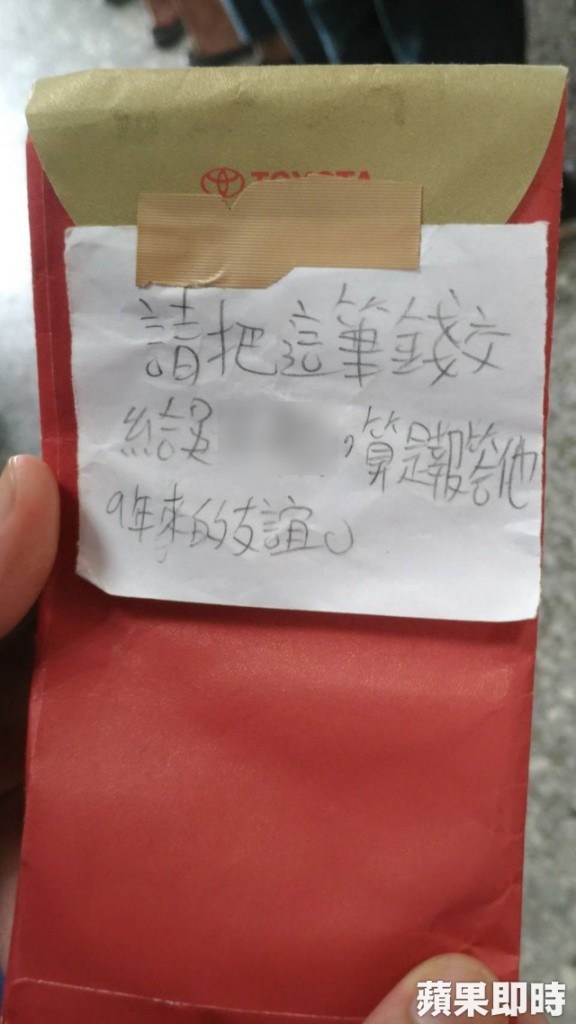 TOYOTA
請把這筆錢交
給吳 ,算是報答他
9年來的友誼。
蘋果即時